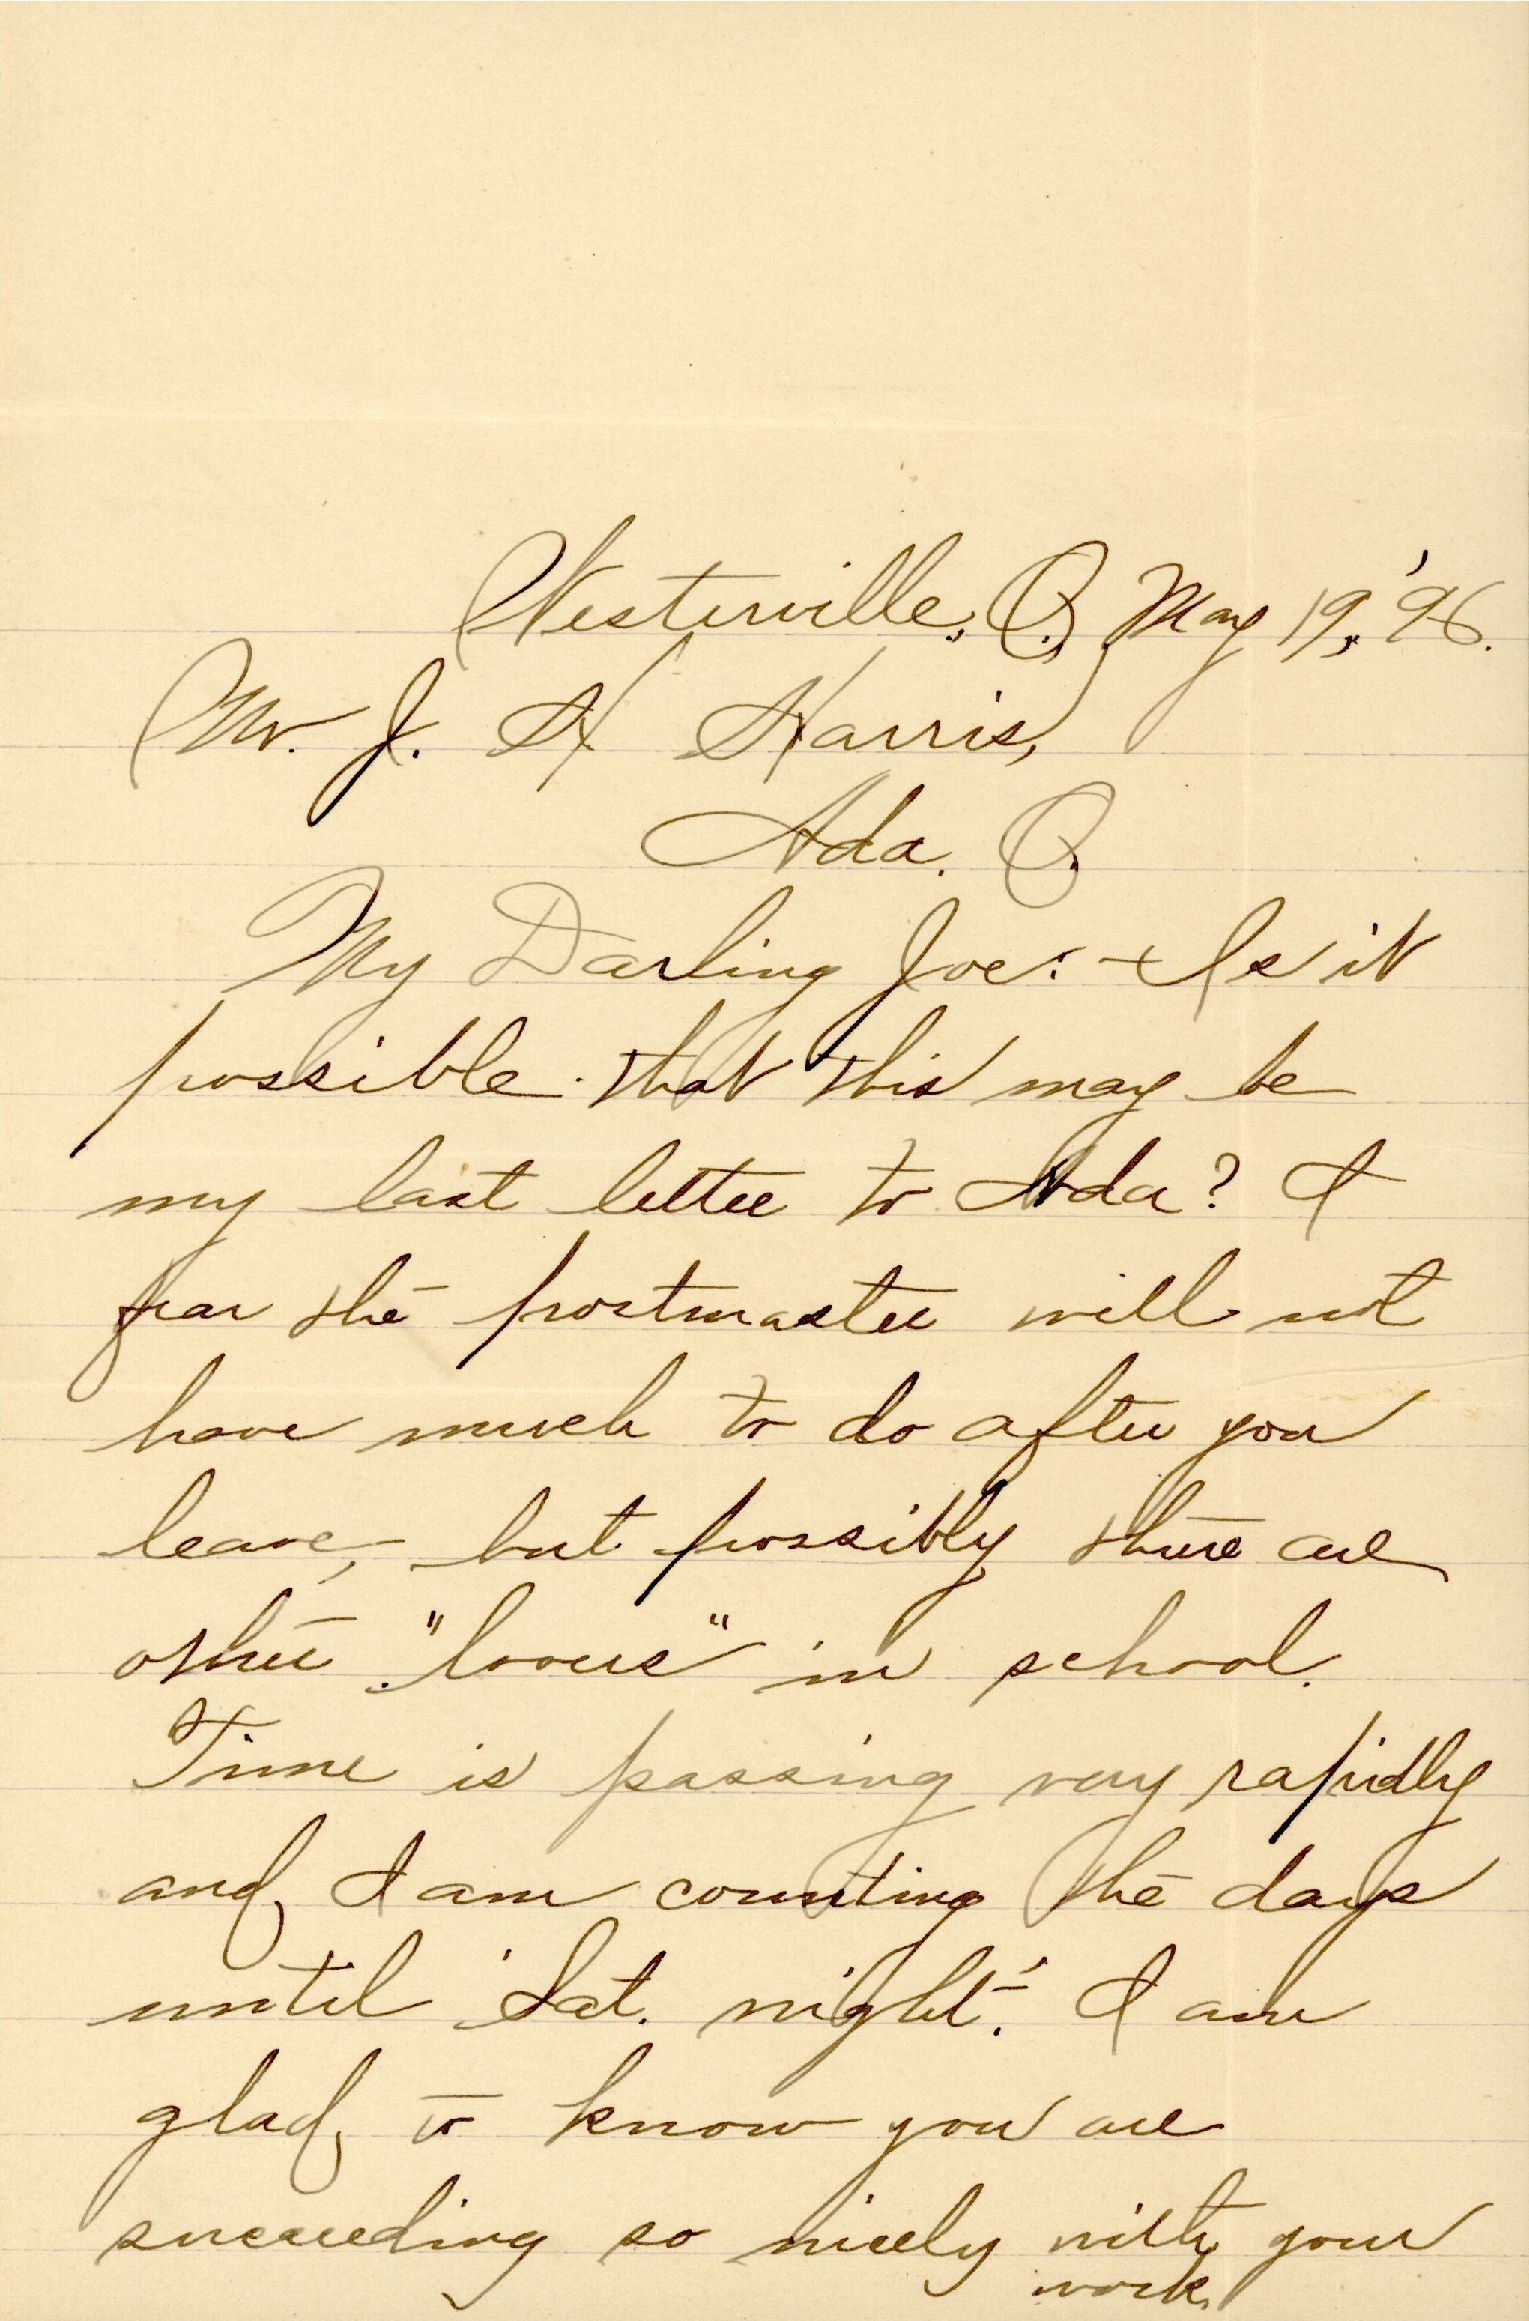 Westerville, O., May 19, '96.
Mr. J. H Harris,
Ada. O.
My Darling Joe: - Is it
possible that this may be
my last letter to Ada? I
fear the postmaster will not
have much to do after you
leave, but possibly there are
other "lovers" in school.
Time is passing very rapidly
and I am counting the days
until 'Sat. night.' I am
glad to know you are
succeeding so nicely with your
work.